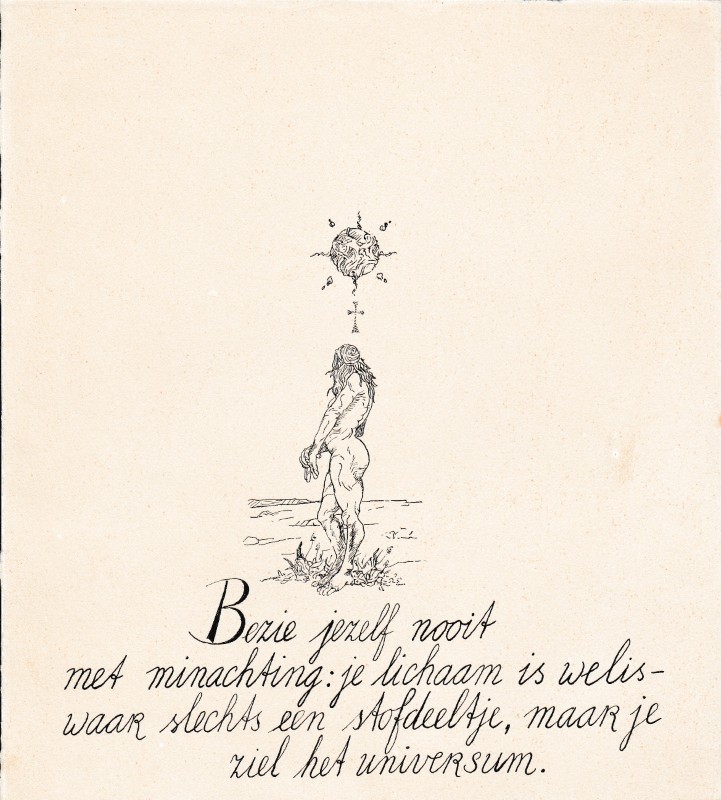 Bezie jezelf nooit
met minachting: je lichaam is welis-
waar slechts een stofdeeltje, maar je
ziel het universum.